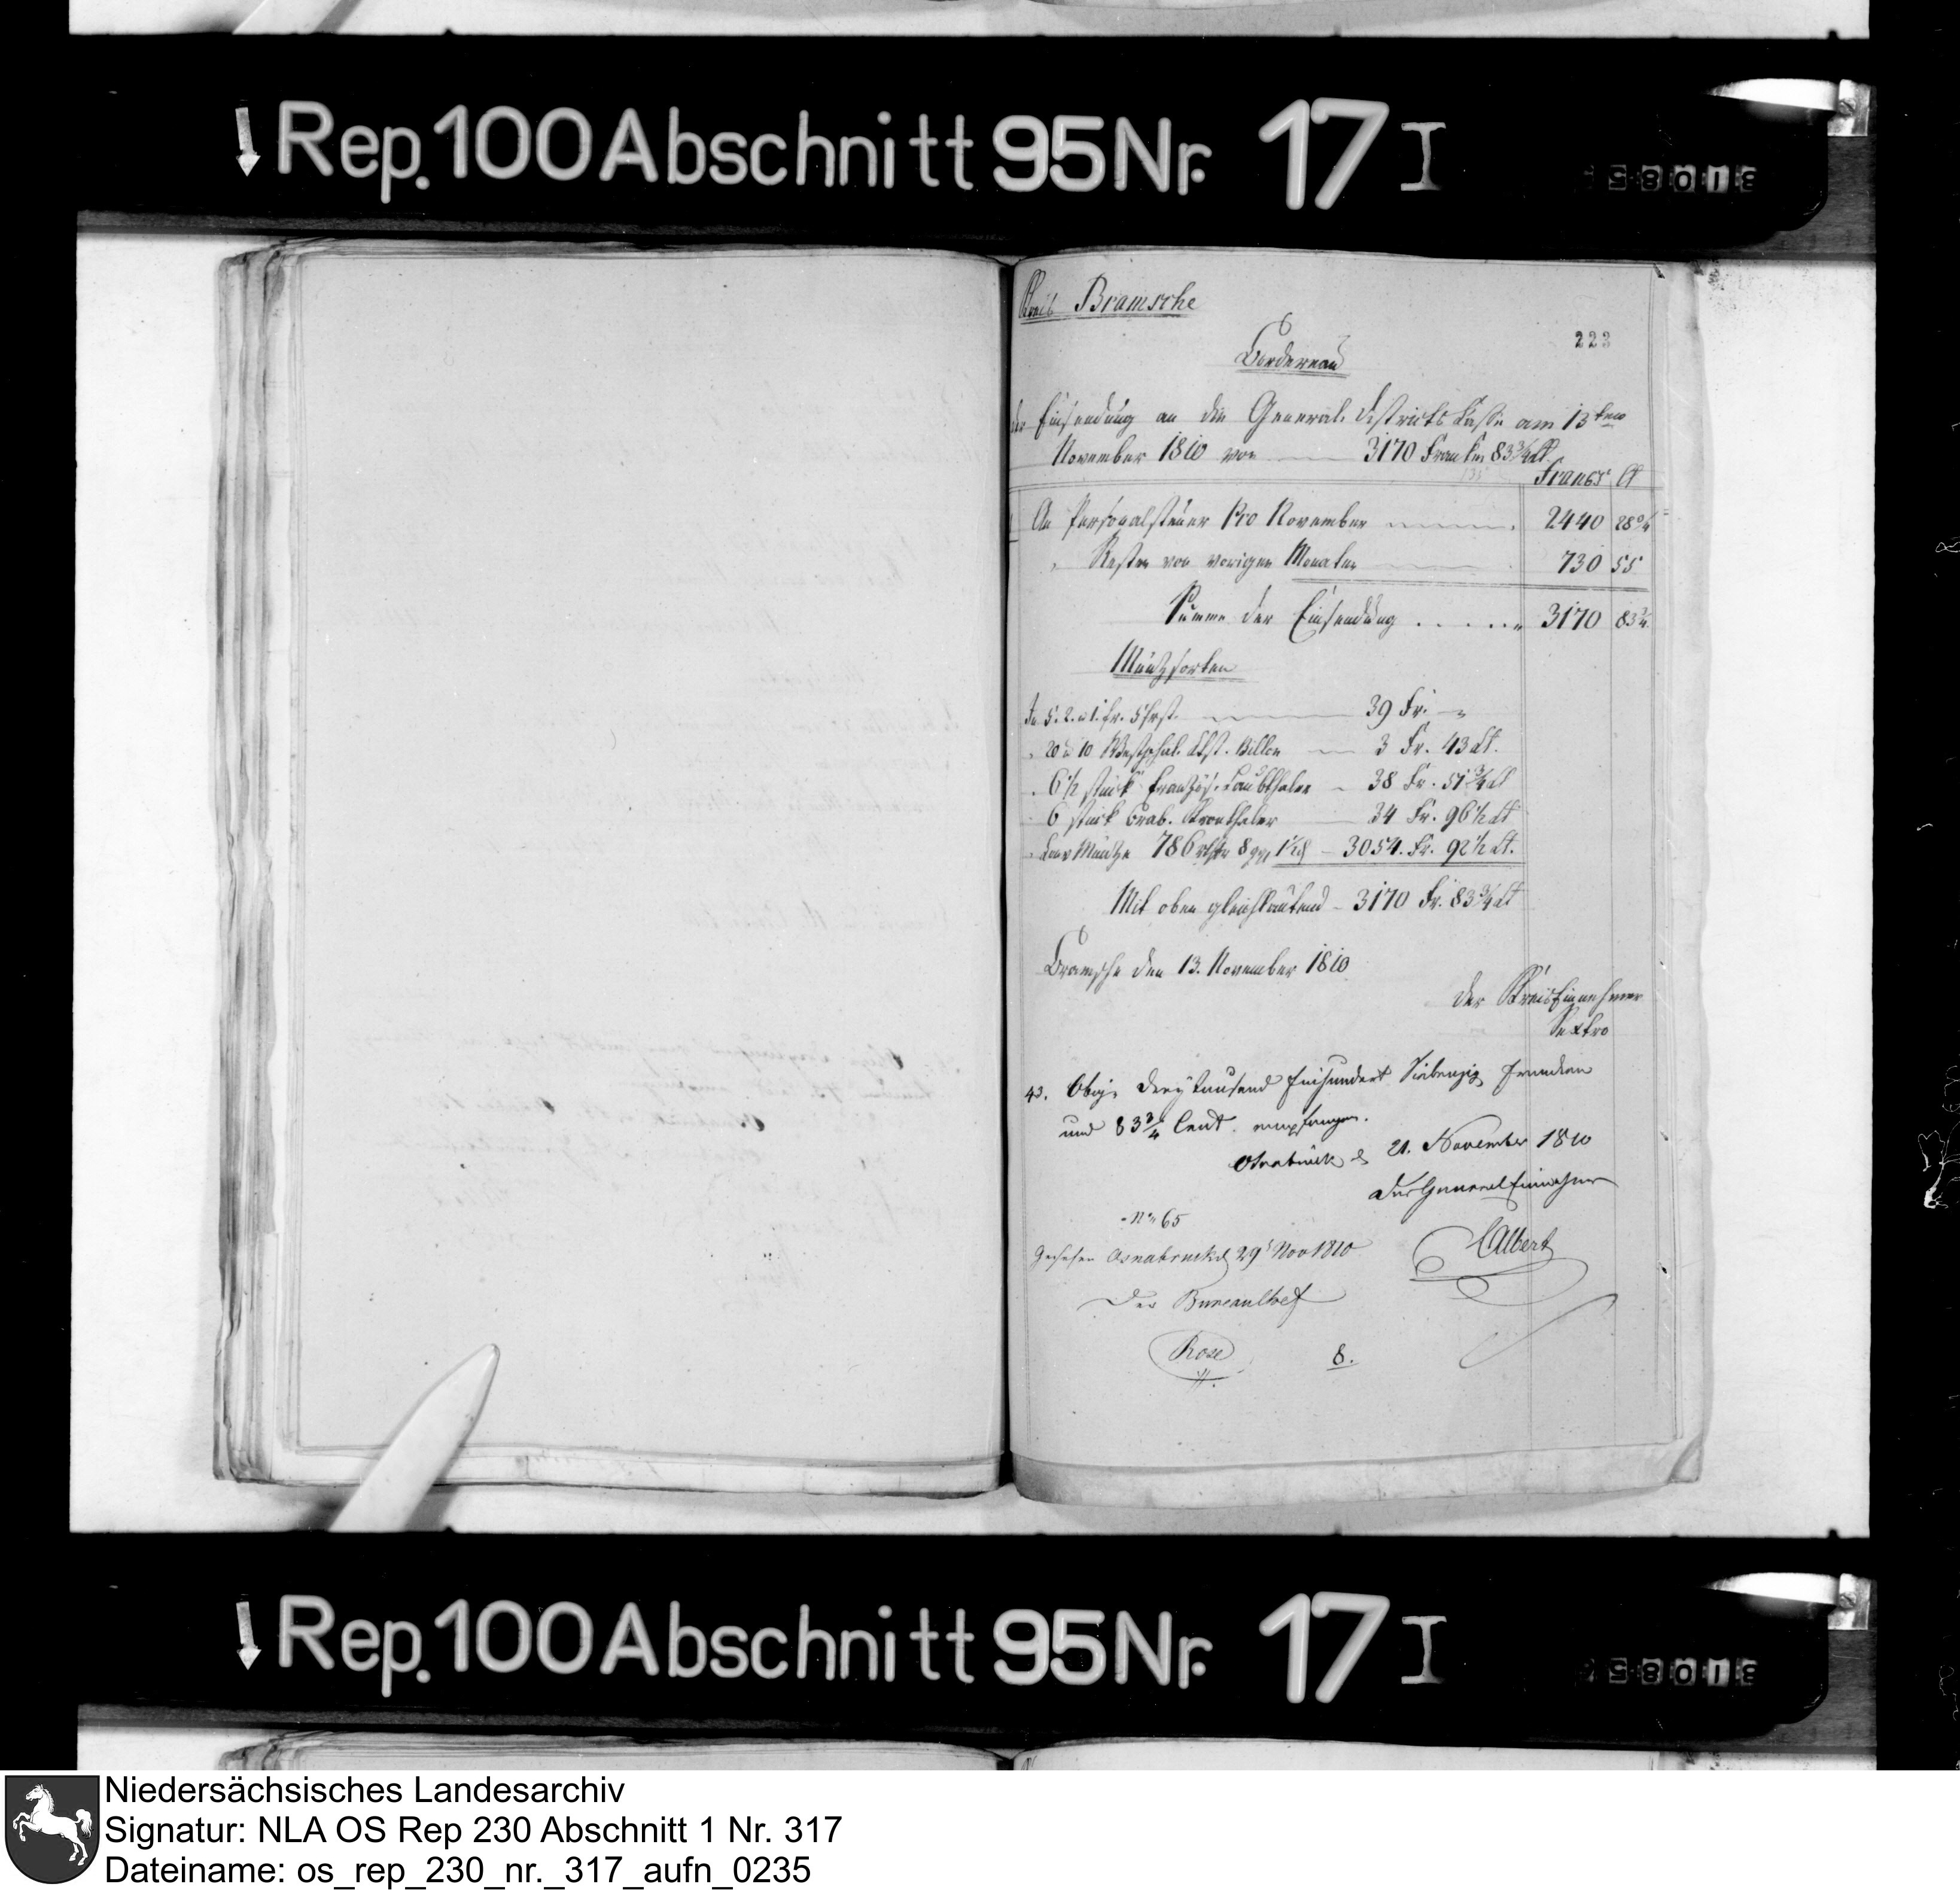 Rep. 100 Abschnitt 95 Nr. 17 I
Kreis Bramsche
223
Bordereau
der Einsendung an die General-Districts Casse am 13ten
November 1810 von 3170 Franken 83 3/4 Ct.
Francs Ct
An Personalsteuer Pro November 2440 28 3/4
" Resten von vorigen Monaten 730 55
Summe der Einsendung 3170 83 3/4
Müntzsorten
In 5. 2. u 1. fr. 39 Fr.
" 20 u 10 Westphal. Billon 3 Fr. 43 Ct.
" 6 1/2 stück Französ. Laubthaler 38 Fr. 51 3/4 Ct
" 6 stück Brab. Kronthaler 34 Fr. 96 1/2 Ct
" Conv Müntze 786 rthlr 8 ggr 3054. Fr. 92 1/2 Ct.
Mit oben gleichlautend 3170 Fr. 83 3/4 Ct
Bramsche den 13. November 1810
Der Kreiseinnehmer
Sextro
43. Obige Dreytausend Einhundert Siebenzig Francken
und 83 3/4 Cent. empfangen.
Osnabrück d 21. November 1810
Der General Einnehmer
CAlbert
No 65
Gesehen Osnabruck d 29t Nov 1810
Der Bureauchef
Rose
8.
Rep. 100 Abschnitt 95 Nr. 17 I
Niedersächsisches Landesarchiv
Signatur: NLA OS Rep 230 Abschnitt 1 Nr. 317
Dateiname: os_rep_230_nr._317_aufn_0235